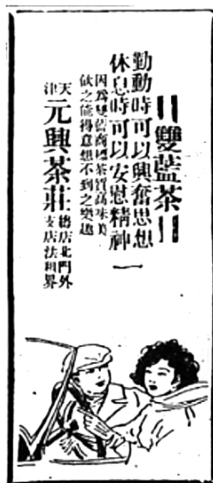 雙藍茶
勤動時可以興奮思想
休息時可以安慰精神
因為雙藍商標茶質高味美
飲之能得意想不到之樂趣
天津
元興茶莊
總店北門外
支店法租界